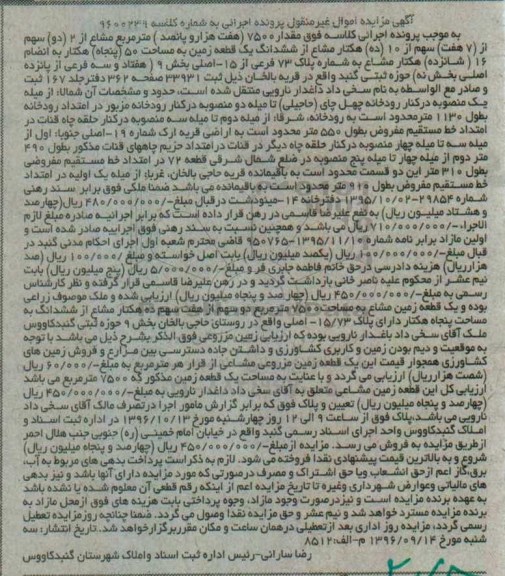 آگهی مزایده اموال غیرمنقول پرونده اجرائی به شماره کلاسه ۹۶۰۰۲۴۹
به موجب پرونده اجرائی کلاسه فوق مقدار ۷۵۰۰ (هفت هزارو پانصد) مترمربع مشاع از ۲ (دو) سهم
از (۷ هفت) سهم از ۱۰ (ده) هکتار مشاع از ششدانگ یک قطعه زمین به مساحت ۵۰ (پنجاه) هکتار به انضمام
۱۶ (شانزده) هکتار مشاع به شماره پلاک ۷۳ فرعی از ۱۵-اصلی بخش ۹ (هفتاد و سه فرعی از پانزده
اصلی بخش نه) حوزه ثبتی گنبد واقع در قریه بالخان ذیل ثبت ۳۳۹۳۱ صفحه ۳۶۲ دفترجلد ۱۶۷ ثبت
و صادر مع الواسطه به نام سخی داد داغدار نارویی منتقل شده است، حدود و مشخصات آن شمالا: از میله
یک منصوبه درکنار رودخانه چهل چای (حاجیلی) تا میله دو منصوبه درکنار رودخانه مزبور در امتداد رودخانه
بطول ۱۱۳۰ مترمحدود است به رودخانه، شرقا: از میله دوم تا میله سه منصوبه درکنار حلقه چاه قنات در
امتداد خط مستقیم مفروض بطول ۵۵۰ متر محدود است به اراضی قریه ارک شماره ۱۹-اصلی جنوبا: اول از
میله سه تا میله چهار منصوبه درکنار حلقه چاه دیگر در قنات درامتداد حریم چاههای قنات مذکور بطول ۴۹۰
متر دوم از میله چهار تا میله پنج منصوبه در ضلع شمال شرقی قطعه ۷۲ در امتداد خط مستقیم مفروضی
بطول ۳۱۰ متر این دو قسمت محدود است به باقیمانده قریه حاجی بالخان، غربا: از میله یک اولیه در امتداد
خط مستقیم مفروض بطول ۹۱۰ متر محدود است به باقیمانده می باشد ضمنا ملکی فوق برابر سند رهنی
شماره ۲۹۸۵۴-۱۳۹۵/۱۰/۰۲ دفترخانه ۱۴-مینودشت درقبال مبلغ-/۴۸۰/۰۰۰/۰۰۰ ریال(چهارصد
و هشتاد میلیون ریال) به نفع علیرضا قاسمی در رهن قرار داده است که برابر اجرائیه صادره مبلغ لازم
الاجراء-/۷۱۰/۰۰۰/۰۰۰ ریال می باشد و همچنین نسبت به سند رهنی فوق اجراییه صادر شده است و
اولین مازاد برابر نامه شماره ۹۵۰۷۶۵-۱۳۹۵/۱۱/۱۰ قاضی محترم شعبه اول اجرای احکام مدنی گنبد در
قبال مبلغ-/۱۰۰/۰۰۰/۰۰۰ ریال (یکصد میلیون ریال) بابت اصل خواسته و مبلغ /۱۰۰/۰۰۰ ریال (صد
هزارریال) هزینه دادرسی درحق خانم فاطمه جابری فر و مبلغ-/۵/۰۰۰/۰۰۰ ریال (پنج میلیون ریال) بابت
نیم عشر از محکوم علیه ناصر خانی بازداشت گردید و در رهن علیرضا قاسمی قرار گرفته و نظر کارشناس
رسمی به مبلغ-/۴۵۰/۰۰۰/۰۰۰ ریال (چهار صد و پنجاه میلیون ریال) ارزیابی شده و ملک موصوف زراعی
بوده و یک قطعه زمین مشاع به مساحت ۷۵۰۰ مترمربع دو سهم از هفت سهم ده هکتار مشاع از ششدانگ به
مساحت پنجاه هکتار دارای پلاک ۱۵/۷۳- اصلی واقع در روستای حاجی بالخان بخش ۹ حوزه ثبتی گنبدکاووس
ملک آقای سخی داد باغدار نارویی بوده که ارزیابی زمین مزروعی فوق الذکر بشرح ذیل می باشد با توجه
به موقعیت و دیم بودن زمین و کاربری کشاورزی و داشتن جاده دسترسی بین مزارع و فروش زمین های
کشاورزی همجوار قیمت این یک قطعه زمین مزروعی مشاعی از قرار هر مترمربع به مبلغ-/۶۰/۰۰۰ ریال
(شصت هزارریال) ارزیابی می گردد با عنایت به مساحت یک قطعه زمین مذکور که ۷۵۰۰ مترمربع می باشد
ارزیابی کل این قطعه زمین مشاعی متعلق به آقای سخی داد داغدار نارویی به مبلغ-/۴۵۰/۰۰۰/۰۰۰ ریال
(چهارصد و پنجاه میلیون ریال) تعیین و پلاک فوق که برابر گزارش مامور اجرا درتصرف مالک آقای سخی داد
نارویی می باشد، پلاک فوق از ساعت ۹ الی ۱۲ روز چهارشنبه مورخ ۱۳۹۶/۱۰/۱۳ در اداره ثبت اسناد و
املاک گنبدکاووس واحد اجرای اسناد رسمی گنبد واقع در خیابان امام خمینی (ره) جنوبی جنب هلال احمر
ازطریق مزایده به فروش می رسد. مزایده از مبلغ-/۴۵۰/۰۰۰/۰۰۰ ریال (چهارصد و پنجاه میلیون ریال)
شروع و به بالاترین قیمت پیشنهادی نقدا فروخته می شود. لازم به ذکر است پرداخت بدهی های مربوط به آب،
برق،گاز اعم ازحق انشعاب ویا حق اشتراک و مصرف درصورتی که مورد مزایده دارای آنها باشد و نیز بدهی
های مالیاتی وعوارض شهرداری وغیره تا تاریخ مزایده اعم از اینکه رقم قطعی آن معلوم شده یا نشده باشد
به عهده برنده مزایده است و نیزدرصورت وجود مازاد، وجوه پرداختی بابت هزینه های فوق ازمحل مازاد به
برنده مزایده مسترد خواهد شد و نیم عشر و حق مزایده نقدا وصول می گردد. ضمنا چنانچه روزمزایده تعطیل
رسمی گردد، مزایده روز اداری بعد ازتعطیلی درهمان ساعت و مکان مقرربرگزارخواهد شد. تاریخ انتشار: سه
شنبه مورخ ۱۳۹۶/۰۹/۱۴ م-الف:۸۵۱۲
رضا سارانی-رئیس اداره ثبت اسناد واملاک شهرستان گنبدکاووس